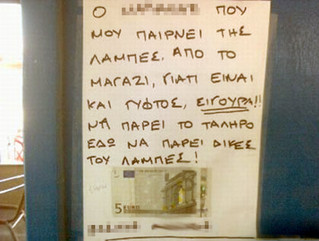 Ο ΠΟΥ
ΜΟΥ ΠΑΙΡΝΕΙ ΤΗΣ
ΛΑΜΠΕΣ. ΑΠΟ ΤΟ
ΜΑΓΑΖΙ, ΓΙΑΤΙ ΕΙΝΑΙ
ΚΑΙ ΓΥΦΤΟΣ, ΣΙΓΟΥΡΑ!!
ΝΑ ΠΑΡΕΙ ΤΟ ΤΑΛΗΡΟ
ΕΔΩ ΝΑ ΠΑΡΕΙ ΔΙΚΕΣ
ΤΟΥ ΛΑΜΠΕΣ!
5 EURO